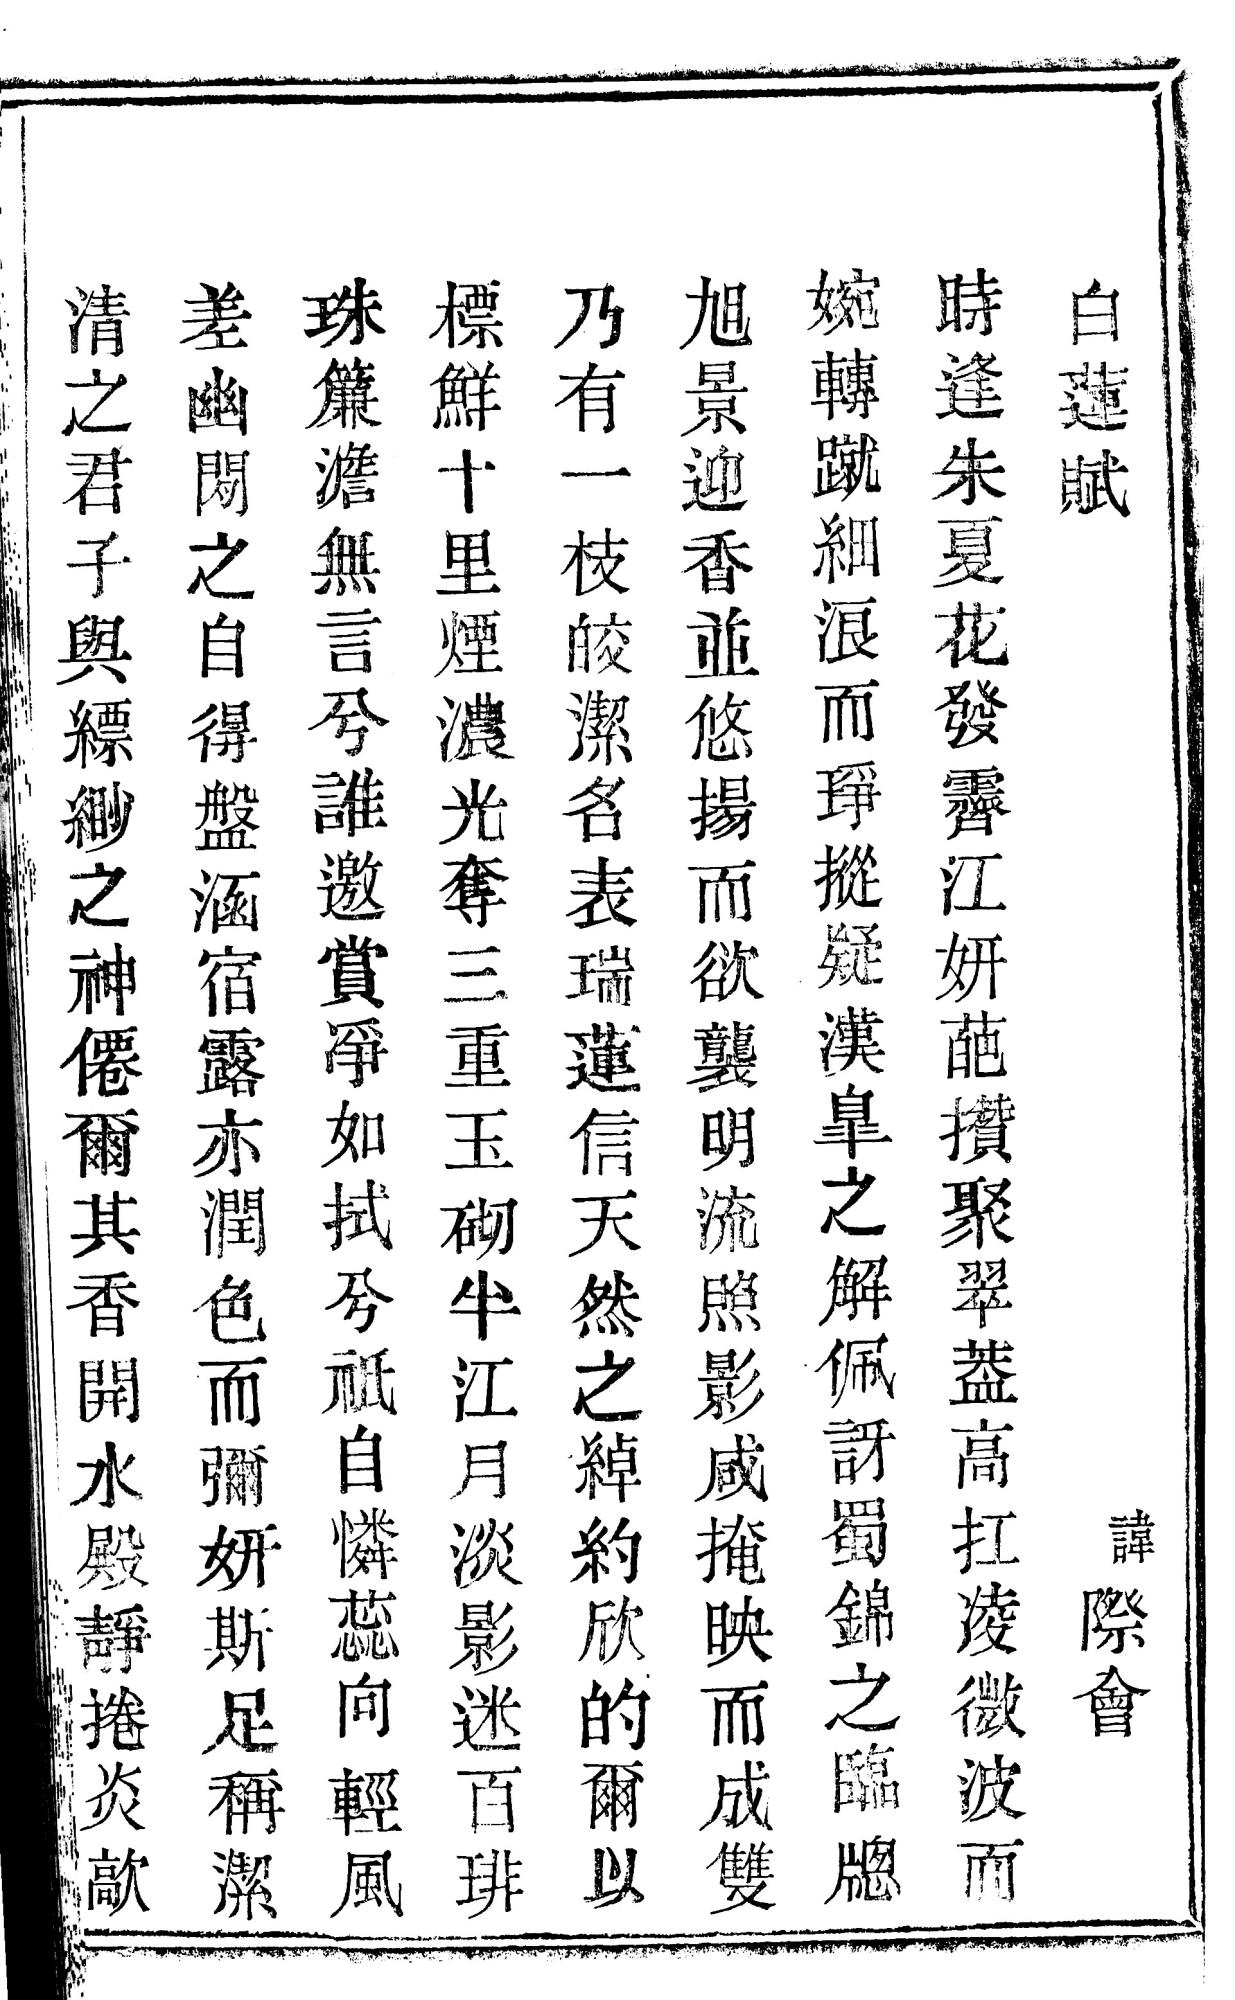 白蓮賦
諱際會
時逢朱夏花發霽江妍葩攢聚翠葢高扛淩微波而
婉轉蹴細浪而琤摐疑漢臯之解佩訝蜀錦之臨牕
旭景迎香並悠揚而欲襲明流照影咸掩映而成雙
乃有一枝皎潔名表瑞蓮信天然之綽約欣的爾以
標鮮十里煙濃光奪三重玉砌半江月淡影迷百琲
珠簾澹無言兮誰邀賞凈如拭兮祗自憐蕊向輕風
差幽閟之自得盤涵宿露亦潤色而彌妍斯足稱潔
清之君子與縹緲之神僊爾其香開水殿靜捲炎歊